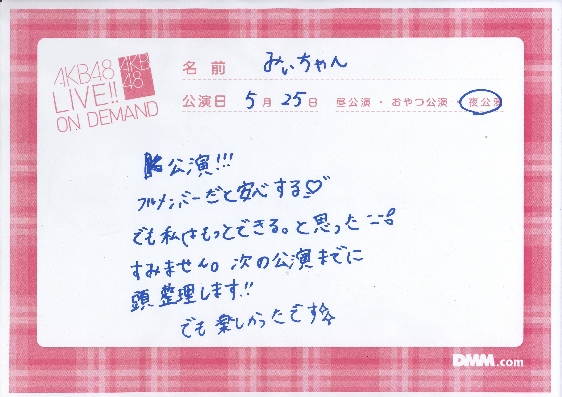 AKB48
LIVE!!
ON DEMAND
AKB
48
名前 みぃちゃん
公演日 5月25日 昼公演・おやつ公演・夜公演
K公演!!!
フルメンバーだと安心する♡
でも私はもっとできる。と思った
すみません。次の公演までに
頭整理します!!
でも楽しかったです☆
DMM.com